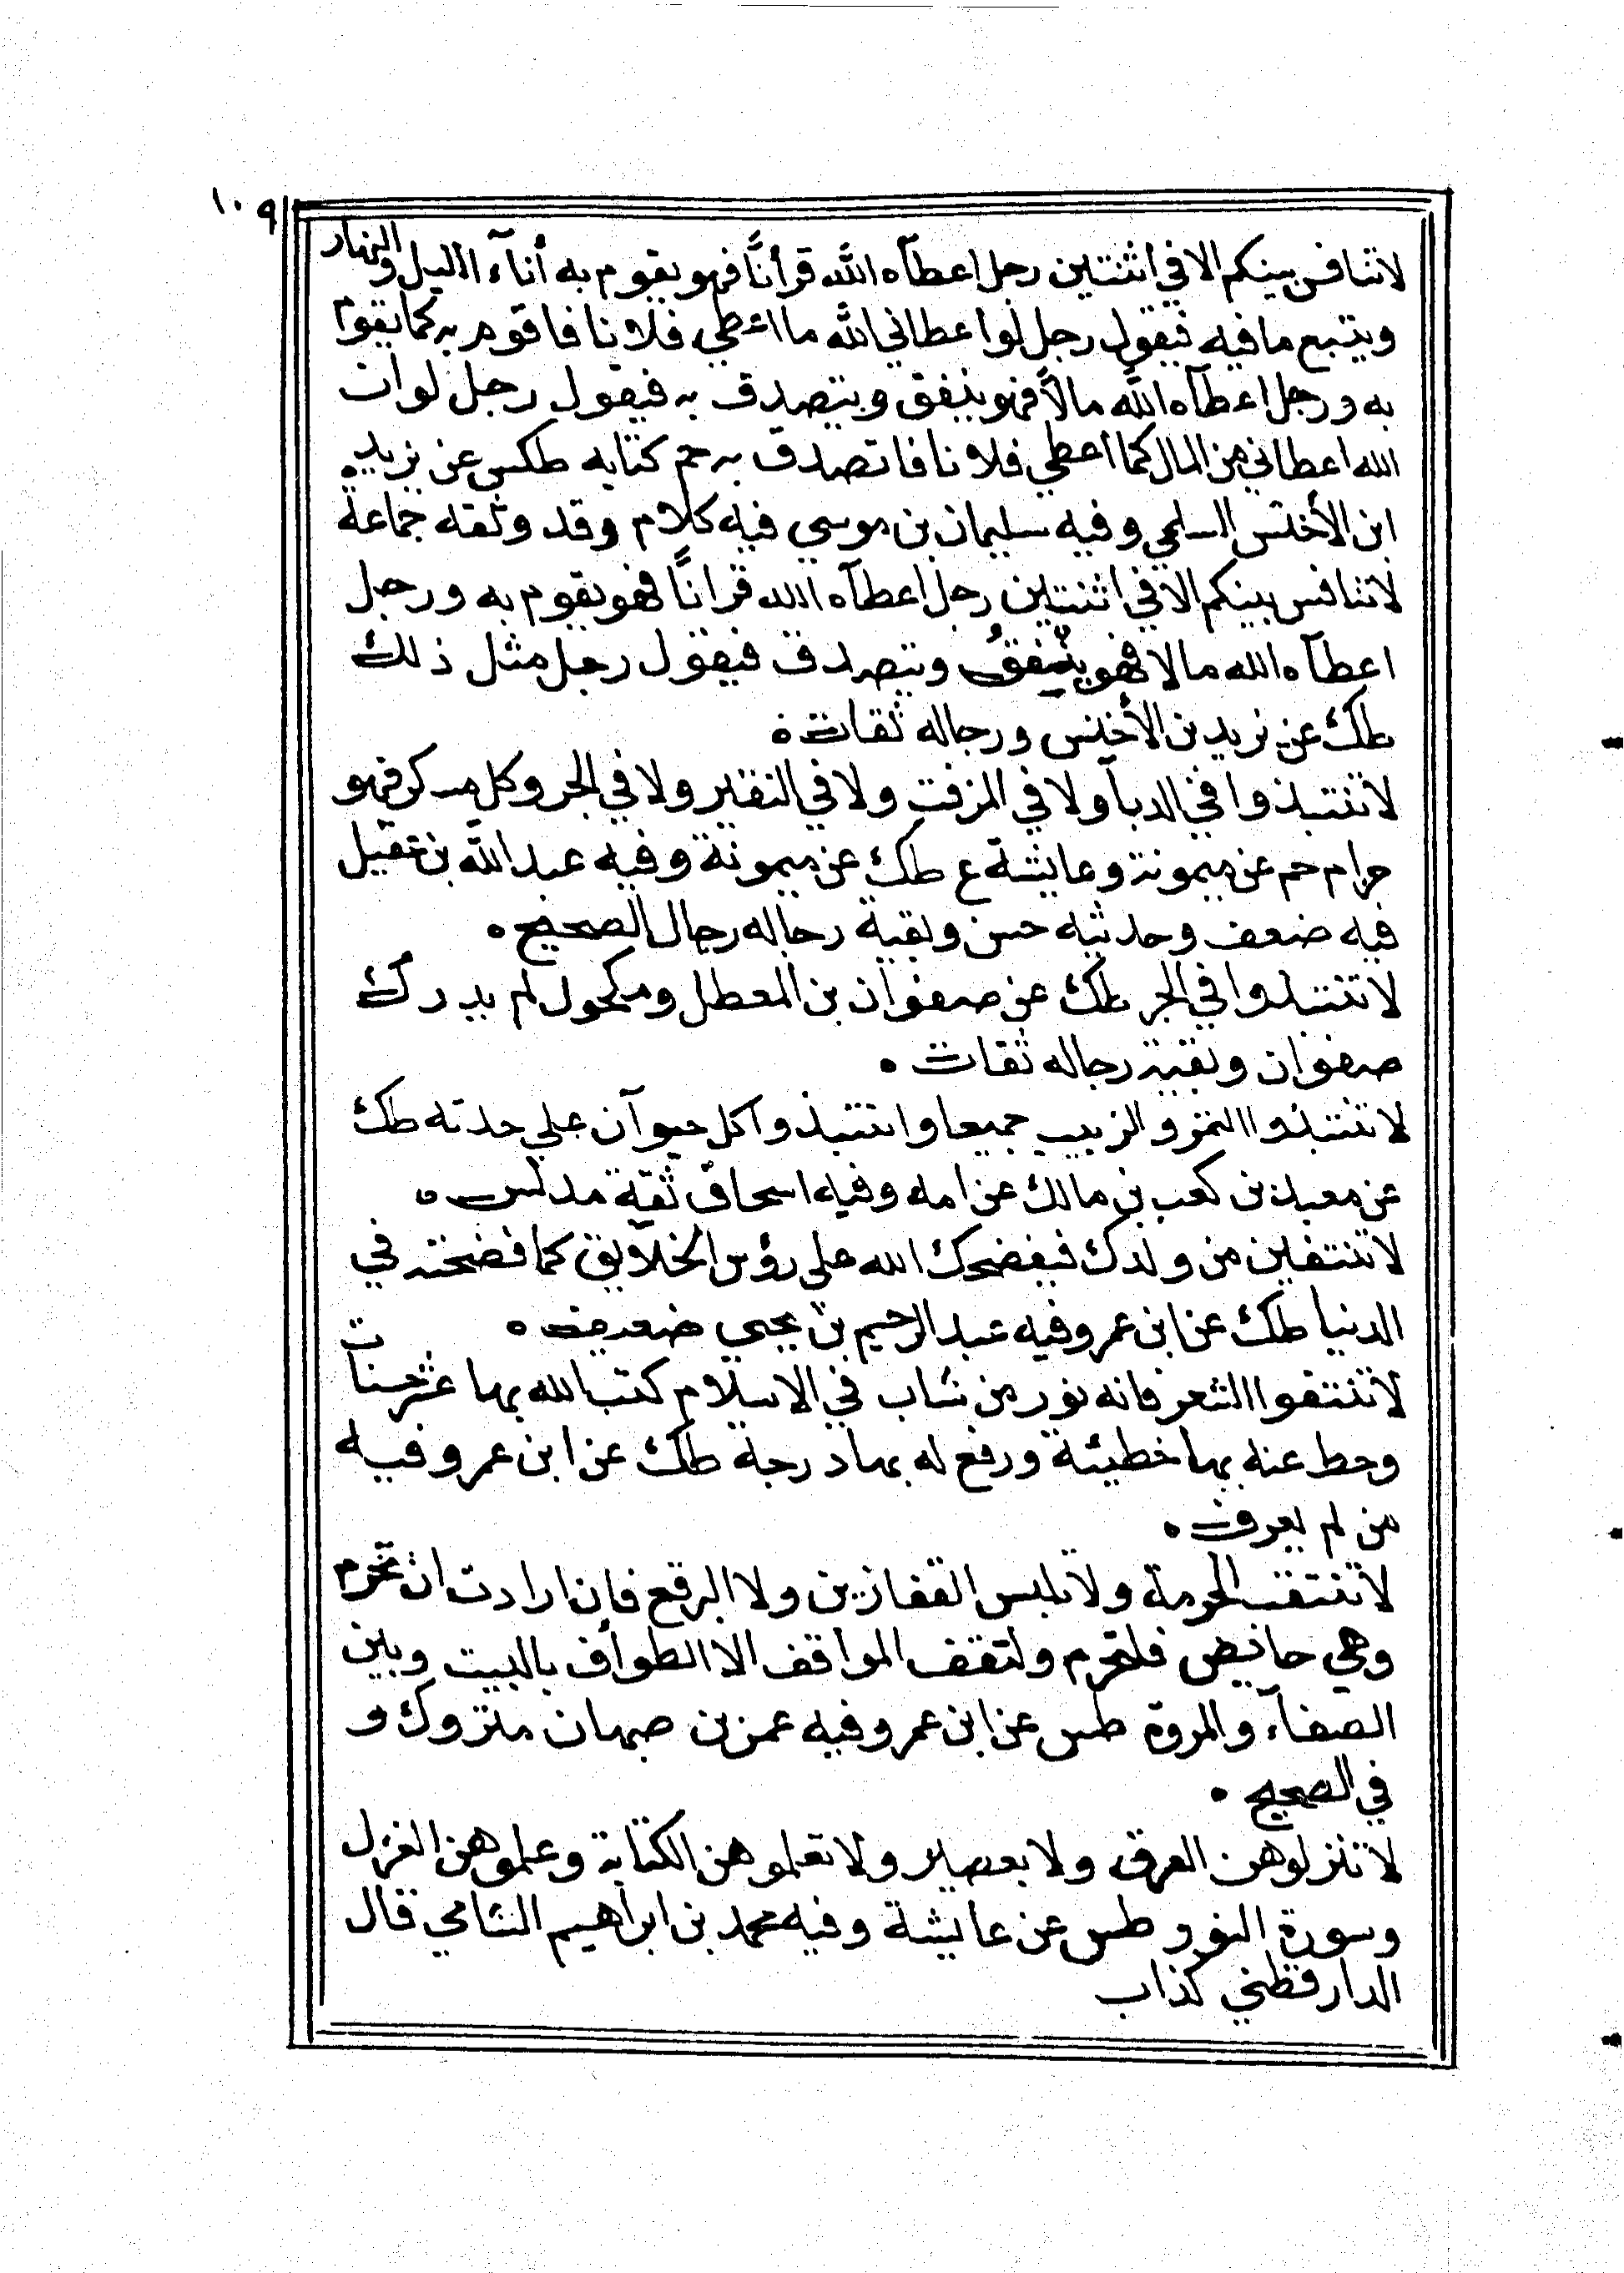 ١٠٩
لاتنافس بينكم الا في اثنتين رجل اعطآه الله قرأنًا فهو يقوم به أنآء الليل والنهار
ويتبع ما فيه فيقول رجل لو اعطاني الله ما اعطي فلانا فاقوم به كما يقوم
به ورجل اعطآه الله مالاً فهو ينفق ويتصدق به فيقول رجل لو ان
الله اعطاني من المال كما اعطي فلانا فاتصدق به حم كتابه طكس عن يزيد
ابن الأخنس السلمي وفيه سليمان بن موسي فيه كلام وقد وثقه جماعة
لاتنافس بينكم الا في اثنتين رجل اعطآه الله قرانًا فهو يقوم به ورجل
اعطآه الله مالا فهو ينفقُ ويتصدق فيقول رجل مثل ذلك
طك عن يزيد بن الأخنس ورجاله ثقات ه
لاتنتبذوا في الدبآ ولا في المزفت ولا في النقير ولا في الجر وكل مسكر فهو
حرام حم عن ميمونة وعايشة ع طك عن ميمونة وفيه عبد الله بن عقيل
فيه ضعف وحديثه حسن وبقية رجاله رجال الصحيح ه
لاتنتبذوا في الجر طك عن صفوان بن المعطل ومكحول لم يدرك
صفوان وبقية رجاله ثقات ه
لاتنتبذوا التمر والزبيب جميعا وانتبذوا كل حيوآن علي حدته طك
عن معبد بن كعب بن مالك عن امه وفيه اسحاق ثقة مدلس ه
لاتنتفين من ولدك فيفضحك الله علي رؤس الخلآيق كما فضحته في
الدنيا طك عن ابن عمر وفيه عبد الرحيم بن يحيي ضعيف ه
لاتنتفوا الشعر فانه نور من شاب في الاسلام كتب الله بها عشر حسنات
وحط عنه بها خطيئة ورفع له بها درجة طك عن ابن عمر وفيه
من لم يعرف ه
لاتنتقب الحرمة ولا تلبس القفازين ولا البرقع فان ارادت ان تحرم
وهي حايض فلتحرم ولتقف المواقف الا الطوأف بالبيت وبين
الصفآء والمروة طس عن ابن عمر وفيه عمر بن صهبان متروك و
في الصحيح ه
لاتنزلوهن الغرف ولا بعصاير ولا تعلموهن الكتابة وعلموهن الغزل
وسورة النور طس عن عايشة وفيه محمد بن ابراهيم الشامي قال
الدارقطني كذاب